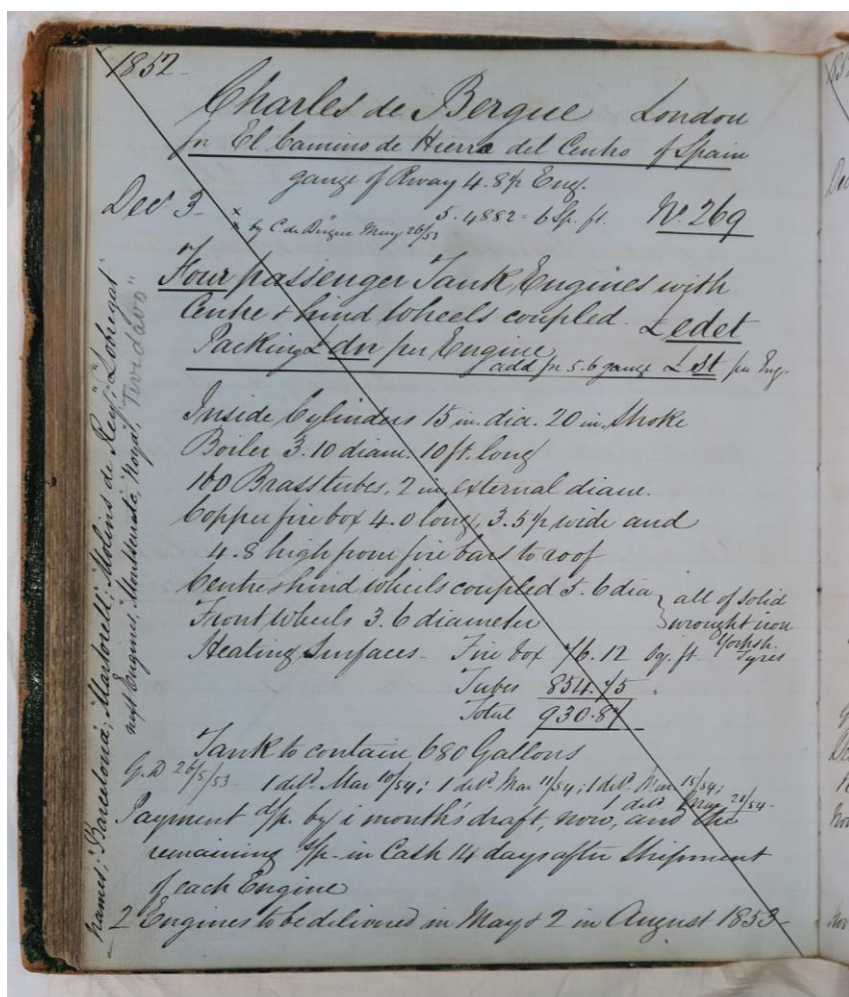 1852
Charles de Bergue London
for El Camino de Hierro del Centro of Spain
gauge of Rway 4.8½ Eng.
Decr 3 5.4882 = 6 Sp. ft. No. 269
x by C de Bergue May 26/53
Four passenger Tank Engines with
Centre & hind Wheels coupled £edet
Packing £dn per Engine
add for 5.6 gauge £st per Eng.
Inside Cylinders 15 in. dia. 20 in. Stroke
Boiler 3.10 diam. 10 ft. long
160 Brass tubes, 2 in external diam.
Copper fire box 4.0 long, 3.5½ wide and
4.8 high from fire bars to roof
Centre & hind wheels coupled 5.6 dia } all of solid
Front Wheels 3.6 diameter } wrought iron
Yorksh. Tyres
Heating Surfaces Fire box 76.12 Sq. ft
Tubes 854.75
Total 930.87
Tank to contain 680 Gallons
G.D 26/5/53 - 1 deld. Mar 10/54; 1 deld. Mar 11/54; 1 deld. Mar 15/54;
1 deld. Mar 21/54
Payment by month's draft, now, and the
remaining in Cash 14 days after Shipment
of each Engine
2 Engines to be delivered in May & 2 in August 1853
names; "Barcelona", "Martorell", "Molins de Rey", "Lobregat"
next Engines, "Montserrat", "Noya", "Tividavo"